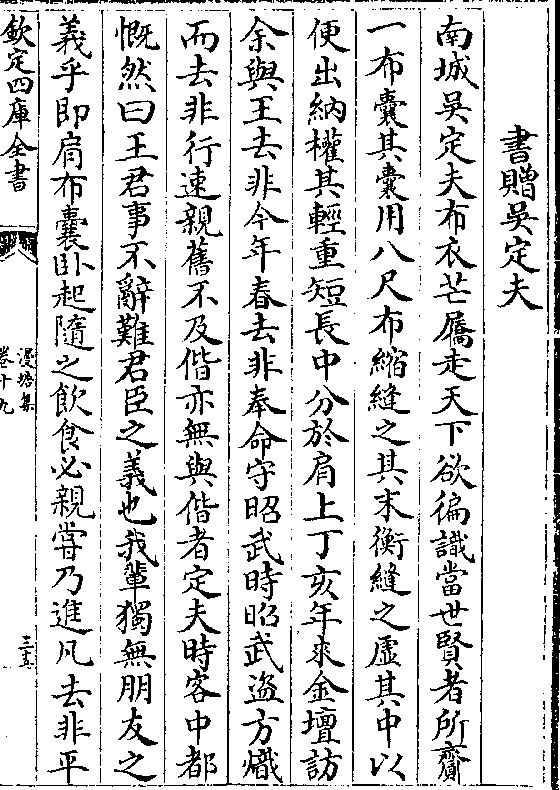 書贈吳定夫
南城吳定夫布衣芒屩走天下欲徧識當世賢者所齎
一布囊其囊用八尺布縮縫之其末衡縫之虛其中以
便出納權其輕重短長中分於肩上丁亥年來金壇訪
余與王去非今年春去非奉命守昭武時昭武盜方熾
而去非行速親舊不及偕亦無與偕者定夫時客中都
慨然曰王君事不辭難君臣之義也我輩獨無朋友之
義乎即肩布囊卧起隨之飲食必親嘗乃進凡去非平
欽定四庫全書
漫塘集
卷十九